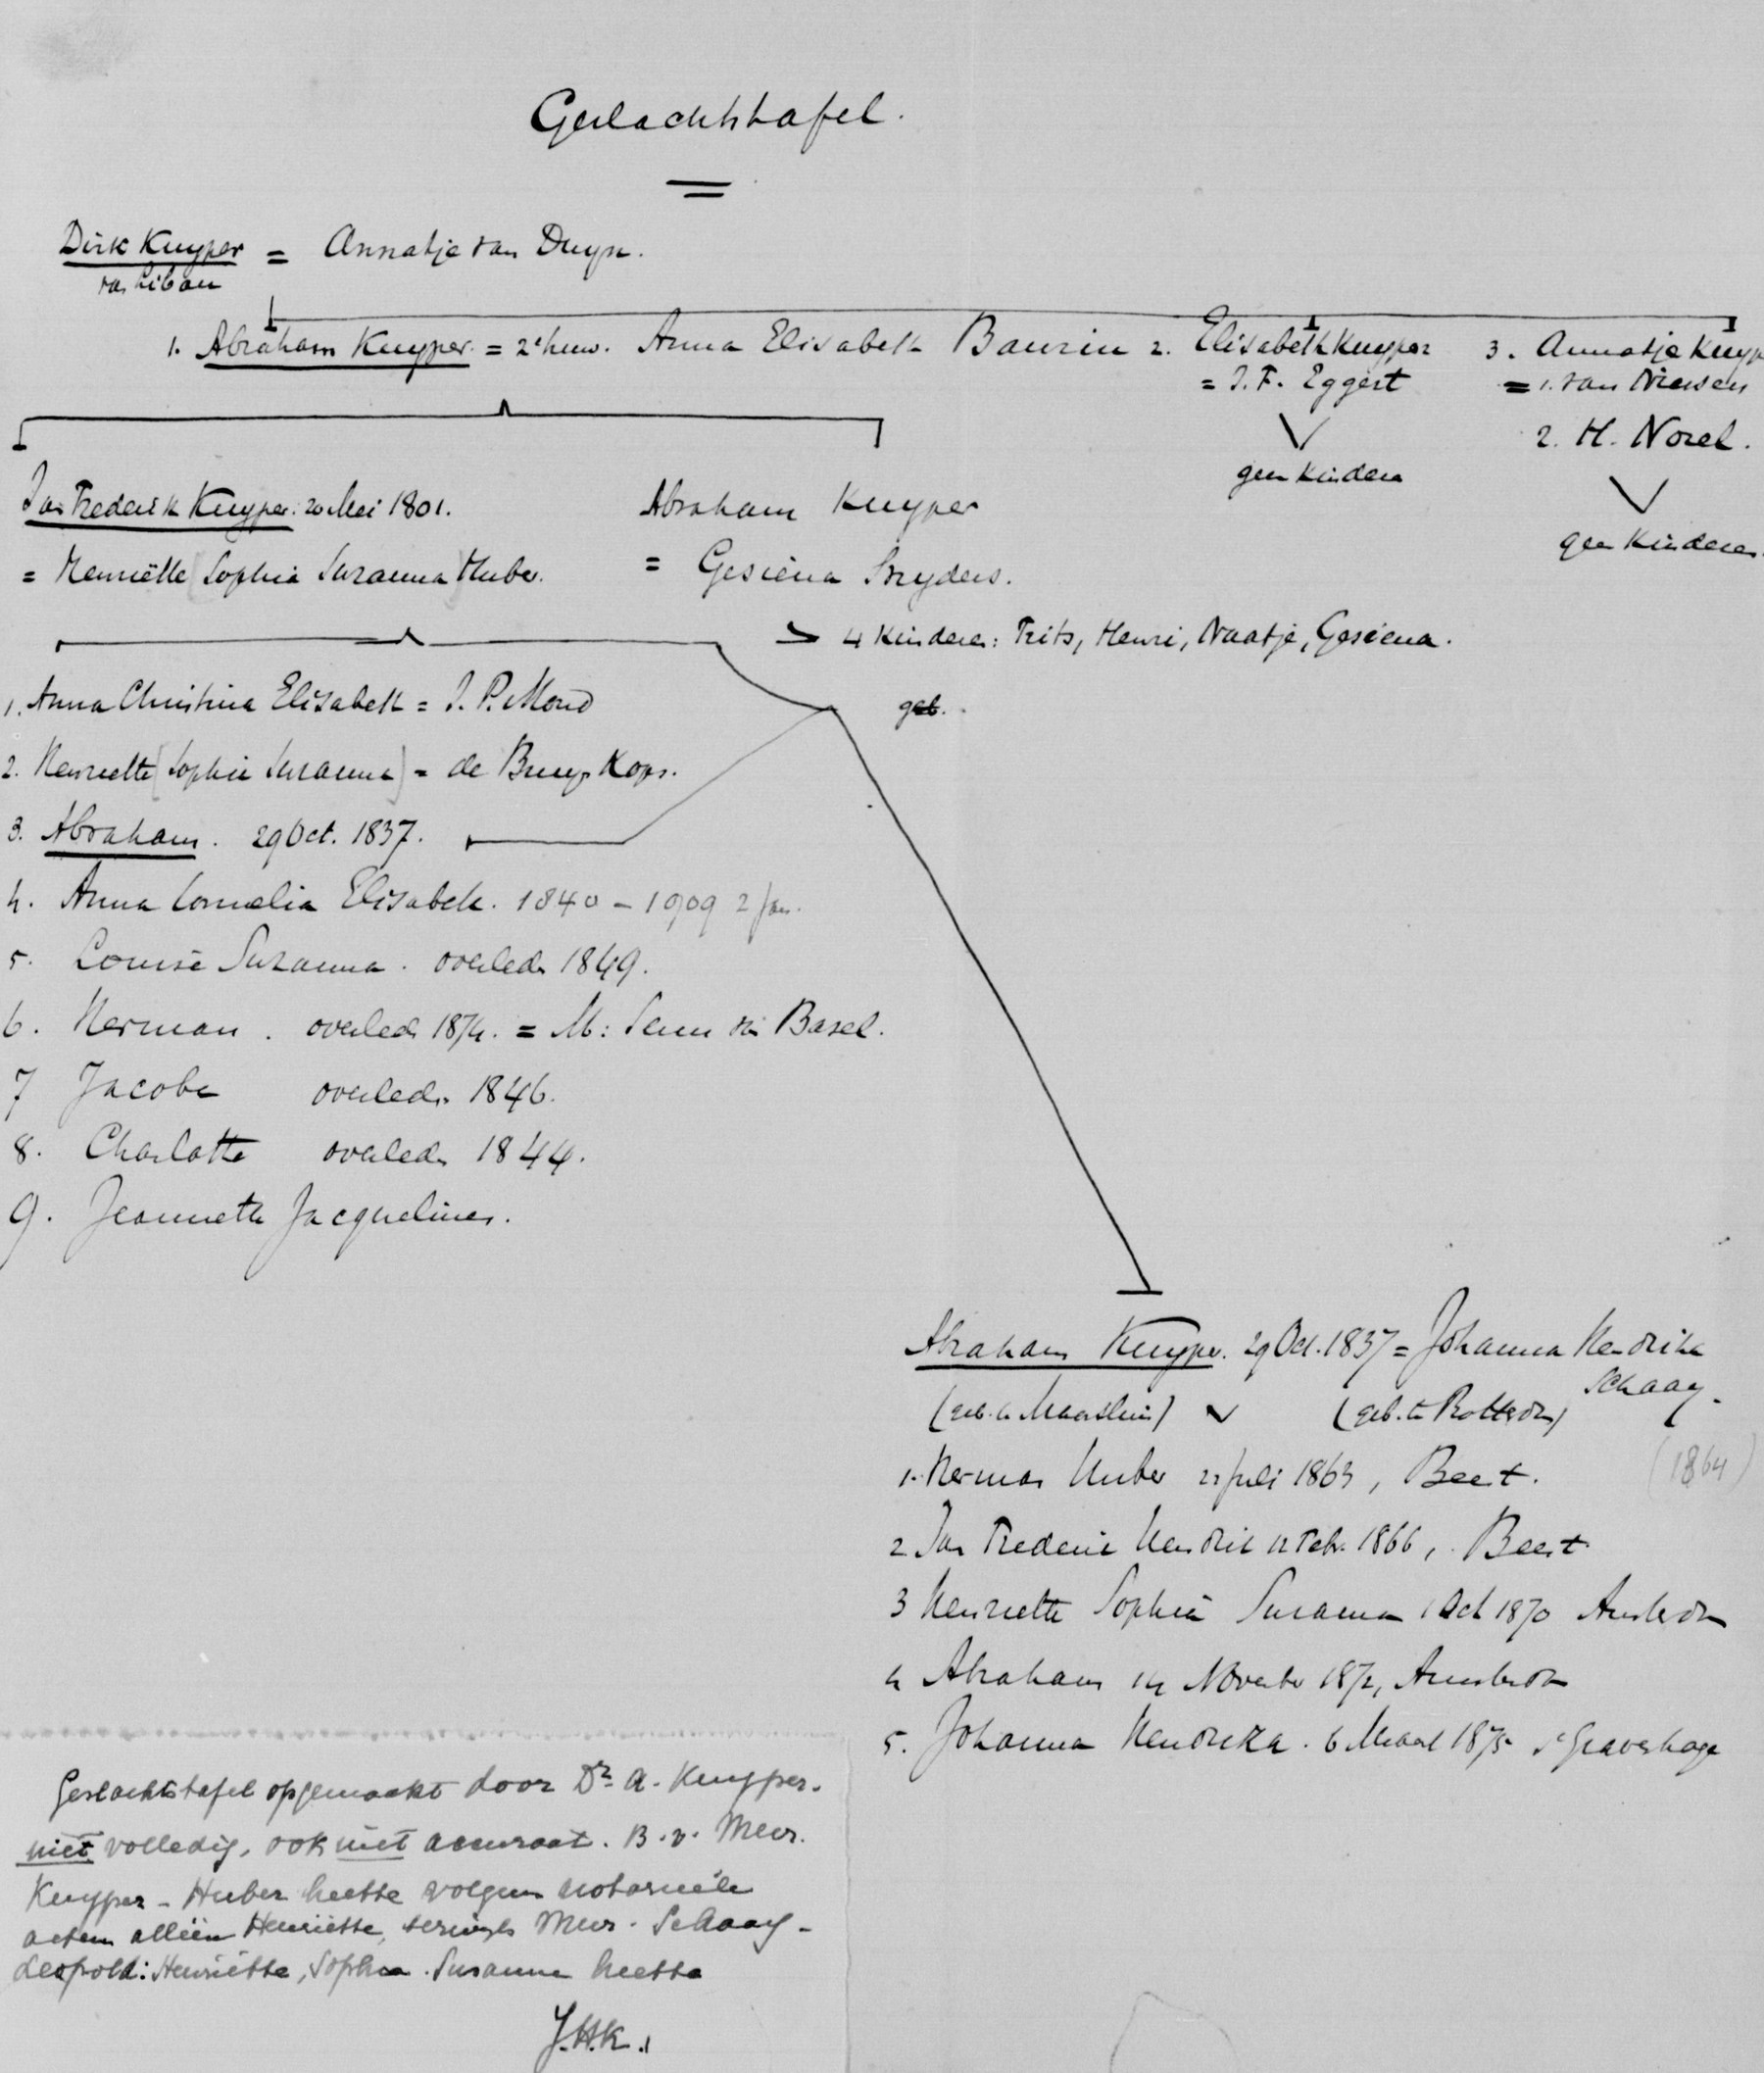 Geslachtstafel.
Dirk Kuyper = Annatje van Duyn.
van Libau
1. Abraham Kuyper = 2e huw. Anna Elisabeth Baurin 2. Elisabeth Kuyper 3. Annatje Kuyp
= J. F. Eggert = 1. van Niewsen
2. H. Nozel.
geen kinderen
geen kinderen
Jan Frederik Kuyper: 20 Mei 1801. Abraham Kuyper
= Henriëtte (Sophia Suzanna) Huber. = Gesiena Snyders.
4 kinderen: Frits, Henri, Naatje, Gesiena.
1. Anna Christina Elisabeth = J. P. Mond
geb.
2. Henriette (Sophia Suzanna) = de Bruyn Kops.
3. Abraham. 29 Oct. 1837.
4. Anna Cornelia Elisabeth. 1840 - 1909 2 Jan.
5. Louise Suzanna. overleden 1849.
6. Herman. overleden 1874. = M: Senn van Basel.
7 Jacoba overleden 1846.
8. Charlotte overleden 1844.
9. Jeannette Jacquelines.
Abraham Kuyper. 29 Oct. 1837 = Johanna Hendrika
Schaay.
(geb. te Maassluis) (geb. te Rotterdam)
(1864)
1. Herman Huber 22 Juli 1863, Beest.
2 Jan Frederik Hendrik 12 Febr. 1866, Beest.
3 Henriette Sophia Suzanna 1 Oct 1870 Amsterdam
4 Abraham 14 November 1872, Amsterdam
5. Johanna Hendrika. 6 Maart 1875 's Gravenhage
Geslachtstafel opgemaakt door Dr. A. Kuyper.
niet volledig, ook niet accuraat. B.v. Mevr.
Kuyper - Huber heette volgens notariëele
acten alléén Henriëtte, terwijl Mevr. Schaay -
Leopold: Henriëtte, Sophia Susanna heette
J.H.K.